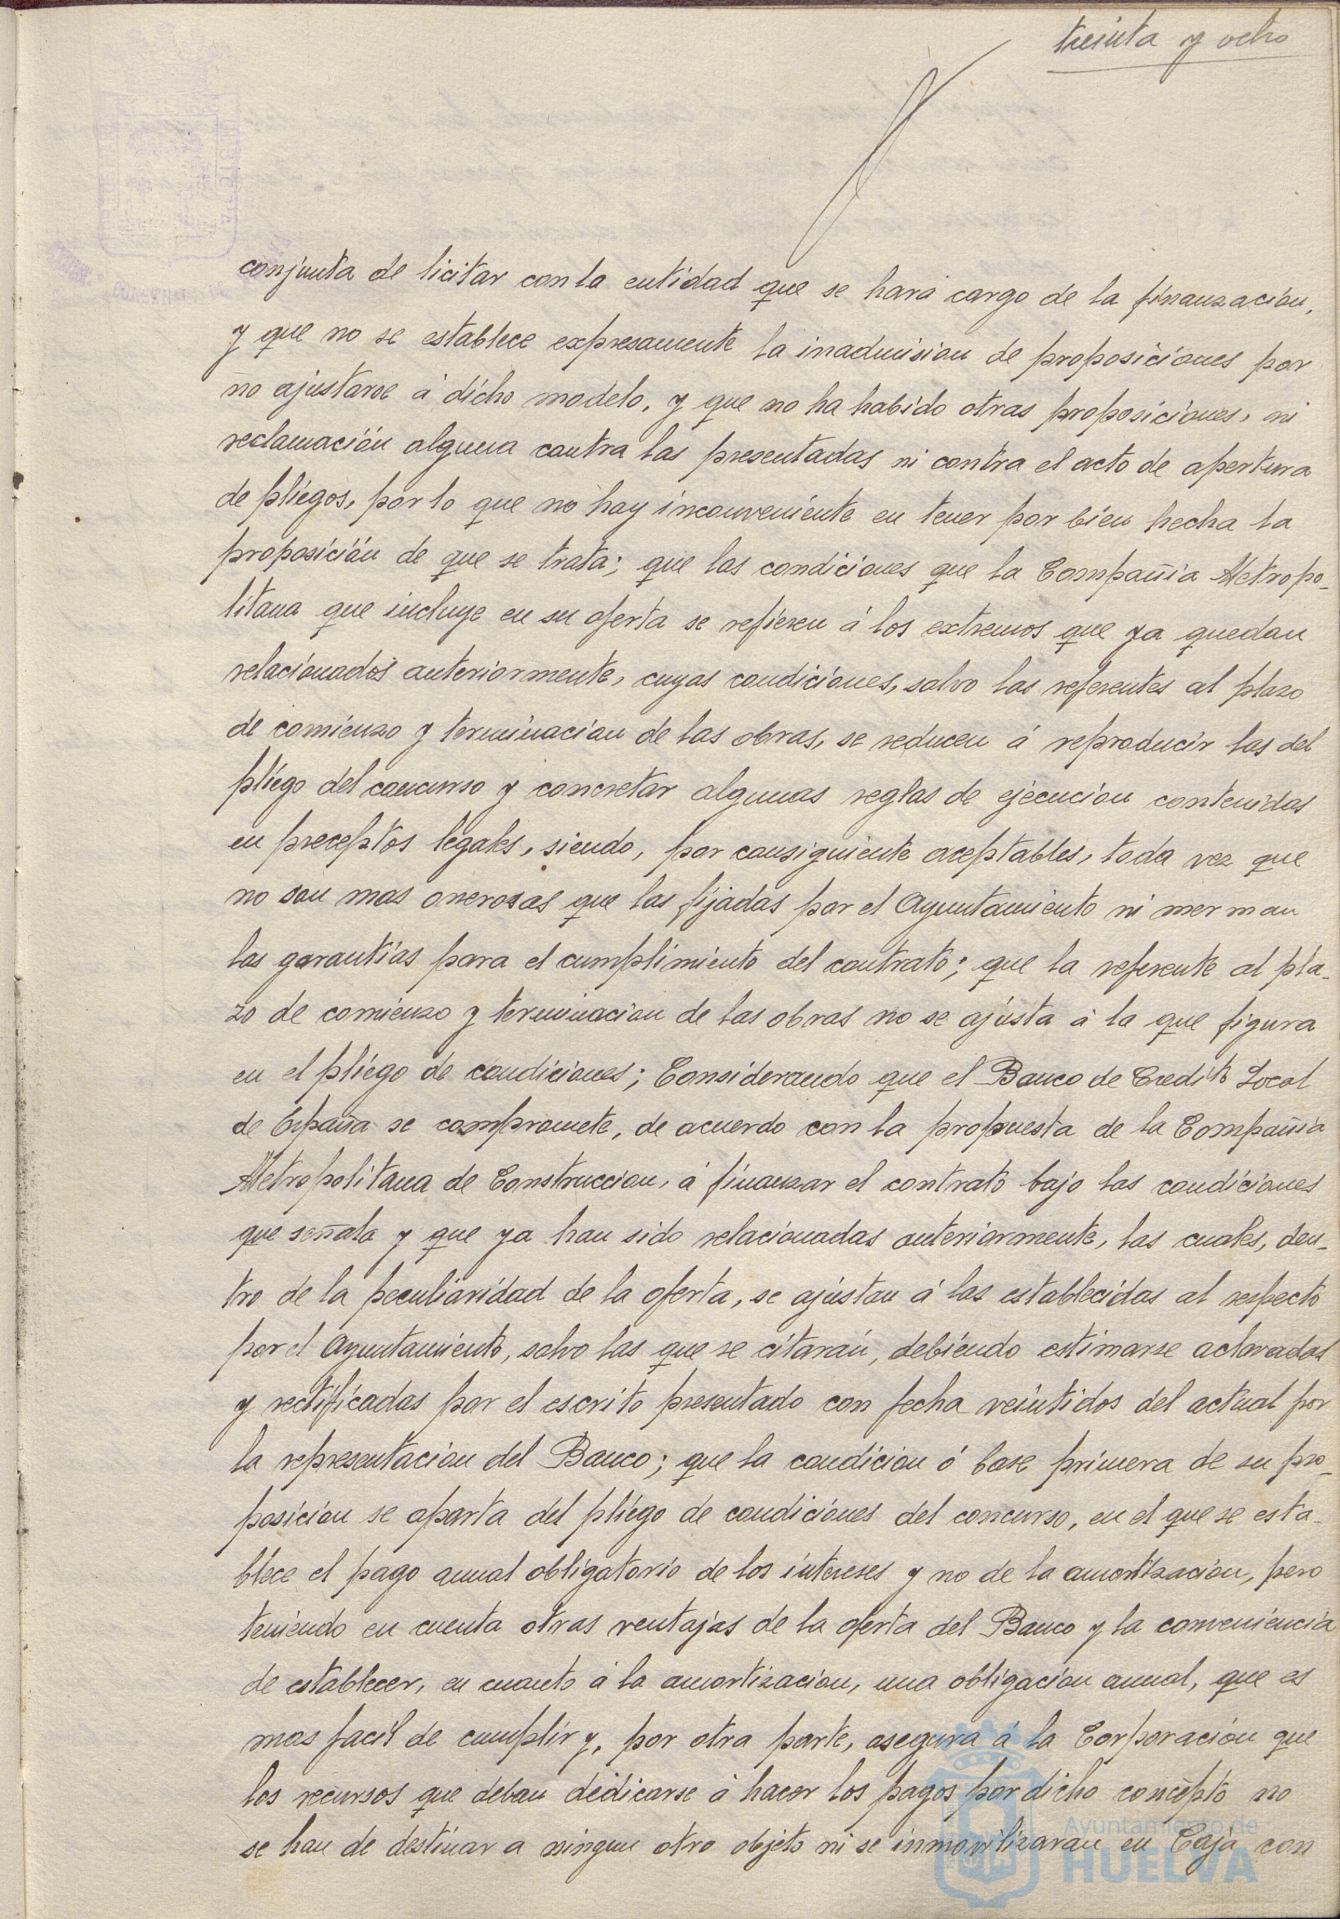 treinta y ocho
conjunta de licitar con la entidad que se hará cargo de la finanzación,
y que no se establece expresamente la inadmision de proposiciones por
no ajustarse á dicho modelo, y que no ha habido otras proposiciones, ni
reclamación alguna contra las presentadas ni contra el acto de apertura
de pliegos, por lo que no hay inconveniente en tener por bien hecha la
proposición de que se trata; que las condiciones que la Compañia Metropo-
litana que incluye en su oferta se refieren á los extremos que ya quedan
relacionados anteriormente, cuyas condiciones, salvo las referentes al plazo
de comienzo y terminacion de las obras, se reducen á reproducir las del
pliego del concurso y concretar algunas reglas de ejecucion contenidas
en preceptos legales, siendo, por consiguiente aceptables, toda vez que
no son mas onerosas que las fijadas por el Ayuntamiento ni merman
las garantías para el cumplimiento del contrato; que la referente al pla-
zo de comienzo y terminacion de las obras no se ajusta á la que figura
en el pliego de condiciones; Considerando que el Banco de Credito Local
de España se compromete, de acuerdo con la propuesta de la Compañia
Metropolitana de Construccion, á finanzar el contrato bajo las condiciones
que señala y que ya han sido relacionadas anteriormente, las cuales, den-
tro de la peculiaridad de la oferta, se ajustan á las establecidas al respecto
por el Ayuntamiento, salvo las que se citarán, debiendo estimarse aclaradas
y rectificadas por el escrito presentado con fecha veintidos del actual por
la representacion del Banco; que la condicion ó base primera de su pro-
posicion se aparta del pliego de condiciones del concurso, en el que se esta-
blece el pago anual obligatorio de los intereses y no de la amortizacion, pero
teniendo en cuenta otras ventajas de la oferta del Banco y la conveniencia
de establecer, en cuanto á la amortizacion, una obligacion anual, que es
mas facil de cumplir y, por otra parte, asegura á la Corporación que
los recursos que deban dedicarse á hacer los pagos por dicho concepto no
se han de destinar a ningun otro objeto ni se inmovilizaran en Caja con
Ayuntamiento de
HUELVA